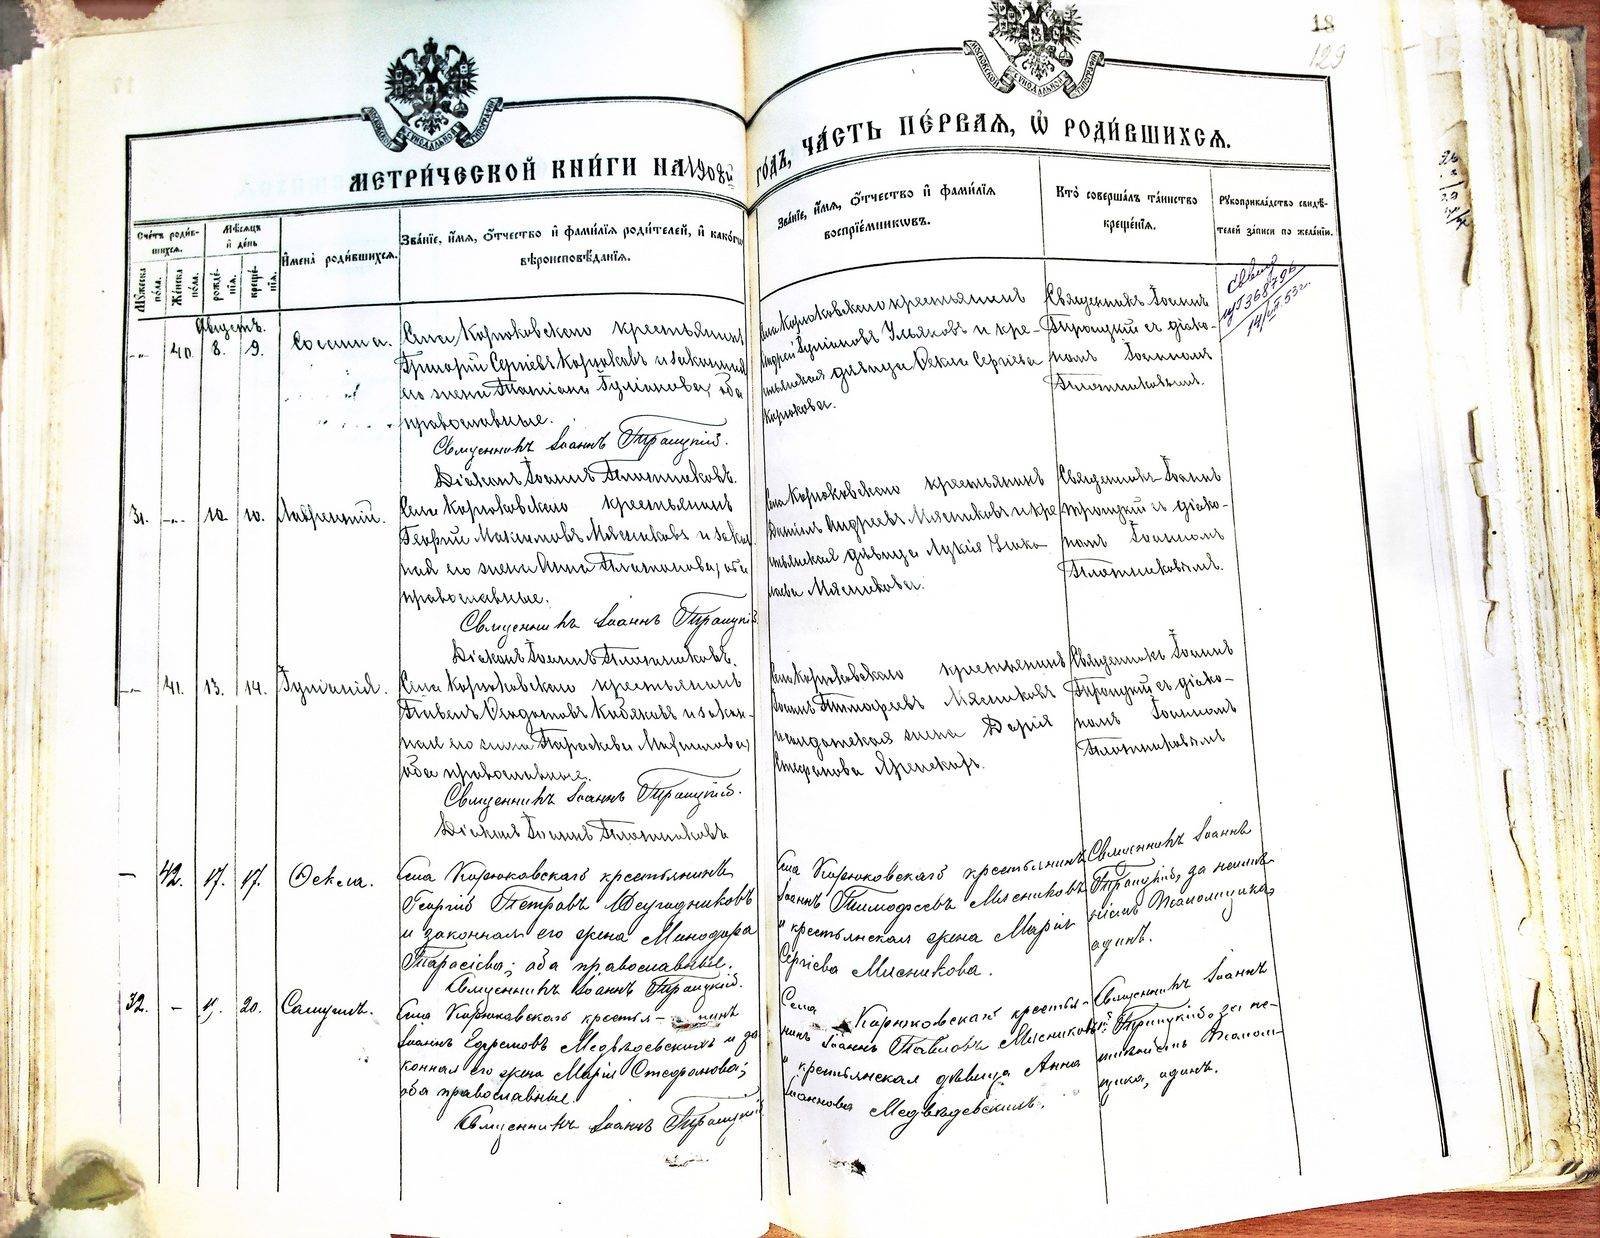 18
129
МОСКОВСКОЙ СѴНОДАЛЬНОЙ ТИПОГРАФІИ
МОСКОВСКОЙ СѴНОДАЛЬНОЙ ТИПОГРАФІИ
МЕТРИ́ЧЕСКОЙ КНИ́ГИ НА 1908й
ГО́ДЪ, ЧА́СТЬ ПЕ́РВАѦ, Ѡ҆ РОДИ́ВШИХСѦ.
Сче́тъ роди́в-
шихсѧ.
Мꙋ́жеска по́ла.
Же́нска по́ла.
Мѣ́сѧцъ
и҆ де́нь
рожде́-
нїѧ.
креще́-
нїѧ.
И҆мена̀ роди́вшихсѧ.
Зва́нїе, и҆́мѧ, ѻ҆́тчество и҆ фами́лїѧ роди́телей, и҆ како́гѡ
вѣроисповѣ́данїѧ.
Зва́нїе, и҆́мѧ, ѻ҆́тчество и҆ фами́лїѧ
воспрїе́мникѡвъ.
Кто̀ соверша́лъ та́инство
креще́нїѧ.
Рꙋкоприкла́дство свидѣ́-
телей за́писи по жела́нїю.
Августъ.
40. 8. 9.
Села Корюковскаго крестьянинъ
Григорій Сергіевъ Корюковъ и законная
его жена Татіана Іуліанова, оба
православные.
Священникъ Іоаннъ Троицкій.
Діаконъ Іоаннъ Плотниковъ.
Села Корюковскаго крестьянинъ
Андрей Іуліановъ Ульяновъ и кре-
стьянская дѣвица Ѳекла Сергіева
Корюкова.
Священникъ Іоаннъ
Троицкій съ діако-
номъ Іоанномъ
Плотниковымъ.
31. 10. 10. Лаврентій.
Села Корюковскаго крестьянинъ
Георгій Максимовъ Мясниковъ и закон-
ная его жена Анна Платонова, оба
православные.
Священникъ Іоаннъ Троицкій.
Діаконъ Іоаннъ Плотниковъ.
Села Корюковскаго крестьянинъ
Даніилъ Андреевъ Мясниковъ и кре
стьянская дѣвица Лукія Нико
лаева Мясникова.
Священникъ Іоаннъ
Троицкій съ діако-
номъ Іоанномъ
Плотниковымъ.
41. 13. 14. Іуліанія.
Села Корюковскаго крестьянинъ
Павелъ Кабяковъ и закон-
ная его жена Параскева
оба православные.
Священникъ Іоаннъ Троицкій.
Діаконъ Іоаннъ Плотниковъ
Села Корюковскаго крестьянинъ
Іоаннъ Тимофеевъ Мясниковъ
и солдатская жена Дарія
Стефанова
Священникъ Іоаннъ
Троицкій съ діако-
номъ Іоанномъ
Плотниковымъ
42. 17. 17. Ѳекла.
Села Корюковскаго крестьянинъ
Георгій Петровъ
и законная его жена Минодора
Тарасіева; оба православные.
Священникъ Іоаннъ Троицкій.
Села Корюковскаго крестьянинъ
Іоаннъ Тимофеевъ Мясниковъ
и крестьянская жена Марія
Сергіева Мясникова.
Священникъ Іоаннъ
Троицкій, за неимѣ-
ніемъ Псаломщика,
одинъ.
32. 20. Самуилъ.
Села Корюковскаго крестья-нинъ
Іоаннъ Ефремовъ Медвѣдевскихъ и за
конная его жена Марія Стефанова;
оба православные.
Священникъ Іоаннъ Троицкій
Села Корюковскаго крестья-
нинъ Іоаннъ Павловъ Мясниковъ
и крестьянская дѣвица Анна
Іоаннова Медвѣдевскихъ.
Священникъ Іоаннъ
Троицкій, за не-
имѣніемъ Псалом-
щика, одинъ.